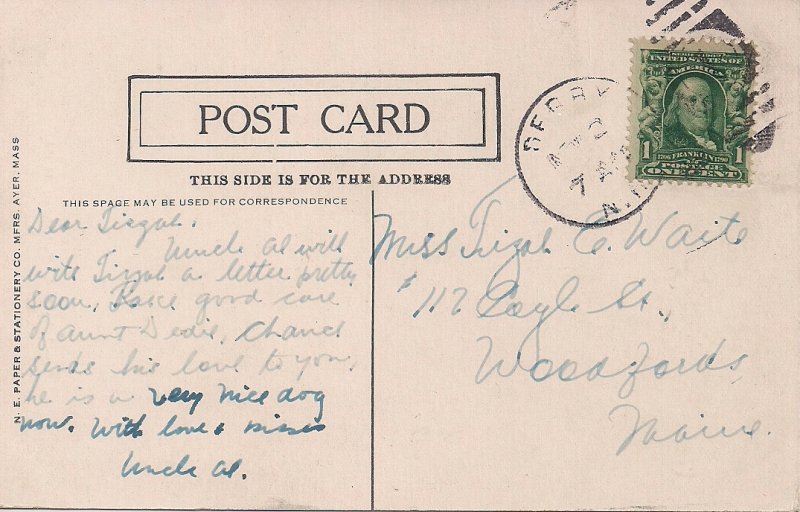 SERIES 1902
UNITED STATES OF
AMERICA
1 1
1706 FRANKLIN 1790
POSTAGE
ONE CENT
DERRY
7 AM
N.H.
POST CARD
THIS SIDE IS FOR THE ADDRESS
THIS SPACE MAY BE USED FOR CORRESPONDENCE
N. E. PAPER & STATIONERY CO. MFRS. AYER, MASS
Dear Tirzah.
Uncle Al will
write Tirzah a letter pretty
soon, Take good care
of aunt Dedie,
sends his love to you,
he is a very nice dog
now. With love & kisses
Uncle Al.
Miss Tirzah C. Waite
#112 Coyle St.,
Woodfords,
Maine.